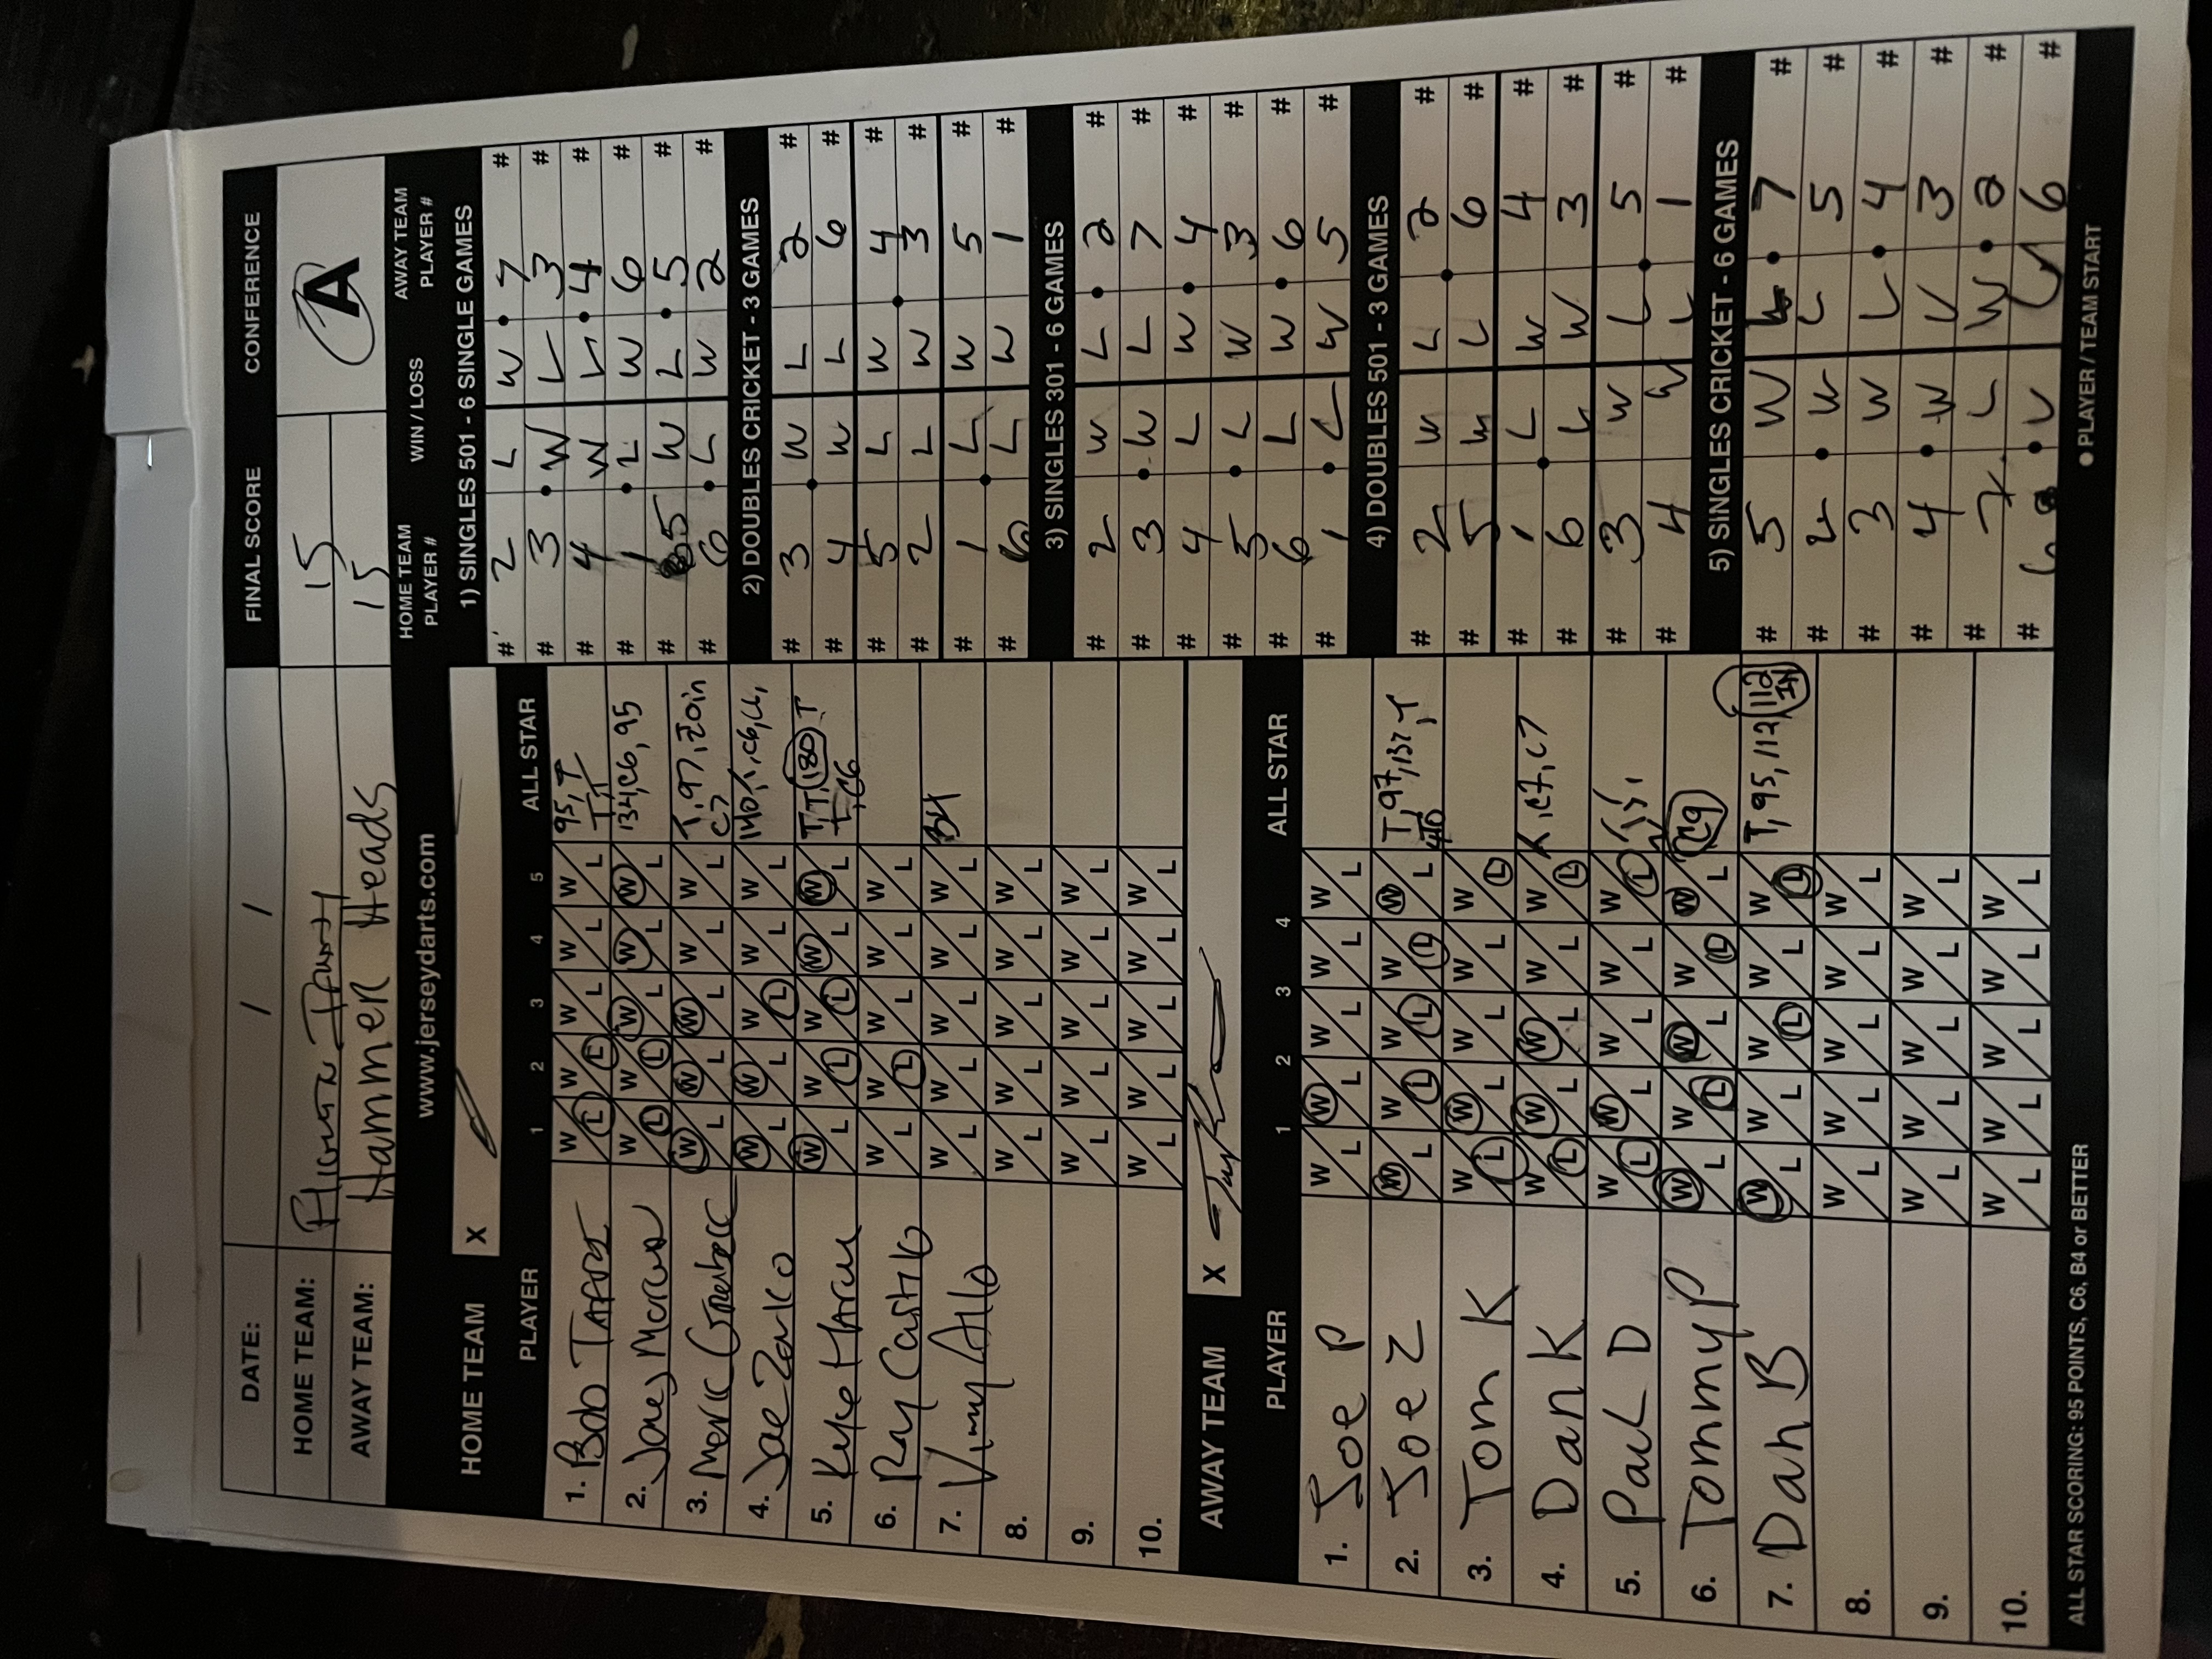 DATE: / / FINAL SCORE CONFERENCE
HOME TEAM: 15 A
AWAY TEAM: Hammer Heads 15
www.jerseydarts.com
HOME TEAM PLAYER # WIN / LOSS AWAY TEAM PLAYER #
HOME TEAM X
PLAYER 1 2 3 4 5 ALL STAR
1. Bob W L W L W L W L W L 95, T
T, T
2. W L W L W L W L W L 134, C6, 95
3. W L W L W L W L W L T, 97,
C7
4. Joe Zarko W L W L W L W L W L 140, C6,
5. Kyle W L W L W L W L W L T, T, 180, T
T, C6
6. Ray Castillo W L W L W L W L W L
7. W L W L W L W L W L
8. W L W L W L W L W L
9. W L W L W L W L W L
10. W L W L W L W L W L
AWAY TEAM X
PLAYER 1 2 3 4 ALL STAR
1. Joe P W L W L W L W L W L
2. Joe Z W L W L W L W L W L T, 97, 137,
3. Tom K W L W L W L W L W L
4. Dan K W L W L W L W L W L C7, C7
5. Paul D W L W L W L W L W L
6. Tommy P W L W L W L W L W L C9
7. Dan B W L W L W L W L W L T, 95, 112, 112 IN
8. W L W L W L W L W L
9. W L W L W L W L W L
10. W L W L W L W L W L
ALL STAR SCORING: 95 POINTS, C6, B4 or BETTER
1) SINGLES 501 - 6 SINGLE GAMES
# 2 L W 7 #
# 3 W L 3 #
# 4 W L 4 #
# 1 L W 6 #
# 5 W L 5 #
# 6 L W 2 #
2) DOUBLES CRICKET - 3 GAMES
# 3 W L 2 #
# 4 W L 6 #
# 5 L W 4 #
# 2 L W 3 #
# 1 L W 5 #
# 6 L W 1 #
3) SINGLES 301 - 6 GAMES
# 2 W L 2 #
# 3 W L 7 #
# 4 L W 4 #
# 5 L W 3 #
# 6 L W 6 #
# 1 L W 5 #
4) DOUBLES 501 - 3 GAMES
# 2 W L 2 #
# 5 W L 6 #
# 1 L W 4 #
# 6 L W 3 #
# 3 W L 5 #
# 4 W L 1 #
5) SINGLES CRICKET - 6 GAMES
# 5 W L 7 #
# 2 W L 5 #
# 3 W L 4 #
# 4 W L 3 #
# 7 L W 2 #
# 6 #
● PLAYER / TEAM START